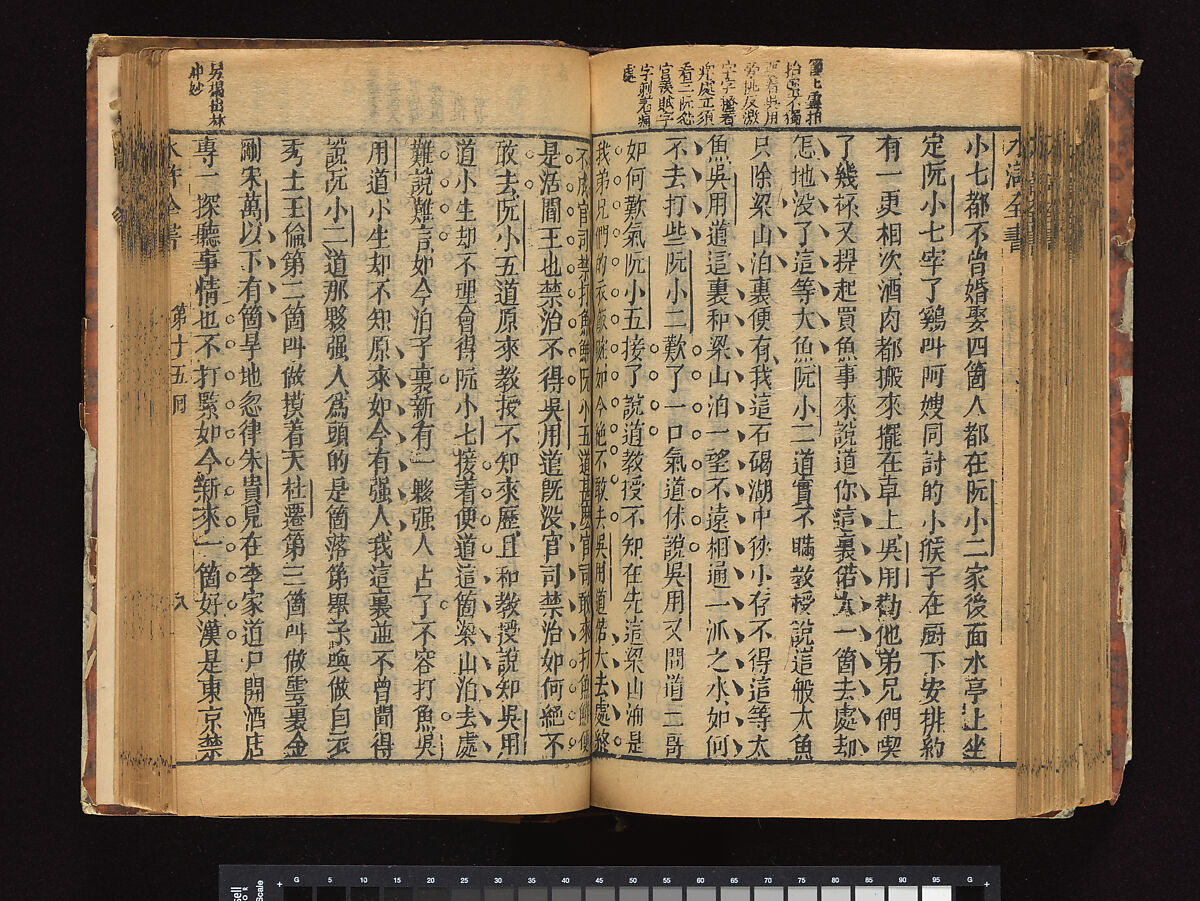 水滸全書
小七都不曾婚娶四箇人都在阮小二家後面水亭上坐
定阮小七宰了鷄叫阿嫂同討的小猴子在厨下安排約
有一更相次酒肉都搬來擺在卓上吳用勸他弟兄們喫
了幾杯又提起買魚事來說道你這裏偌大一箇去處却
怎地没了這等大魚阮小二道實不瞞教授說這般大魚
只除梁山泊裏便有我這石碣湖中狹小存不得這等大
魚吳用道這裏和梁山泊一望不遠相通一派之水如何
不去打些阮小二歎了一口氣道休說吳用又問道二哥
如何歎氣阮小五接了說道教授不知在先這梁山泊是
我弟兄們的衣飯碗如今絶不敢去吳用道偌大去處終
不成官司禁打魚鮮阮小五道甚麽官司敢來打魚鮮便
是活閻王也禁治不得吳用道旣没官司禁治如何絕不
敢去阮小五道原來教授不知來歷且和教授說知吳用
道小生却不理會得阮小七接着便道這箇梁山泊去處
難說難言如今泊子裏新有一夥强人占了不容打魚吳
用道小生却不知原來如今有强人我這裏並不曾聞得
說阮小二道那夥强人爲頭的是箇落第舉子喚做白衣
秀士王倫第二箇叫做摸着天杜遷第三箇叫做雲裏金
剛宋萬以下有箇旱地忽律朱貴見在李家道口開酒店
專一探聽事情也不打緊如今新來一箇好漢是東京禁
水滸全書 第十五回 八